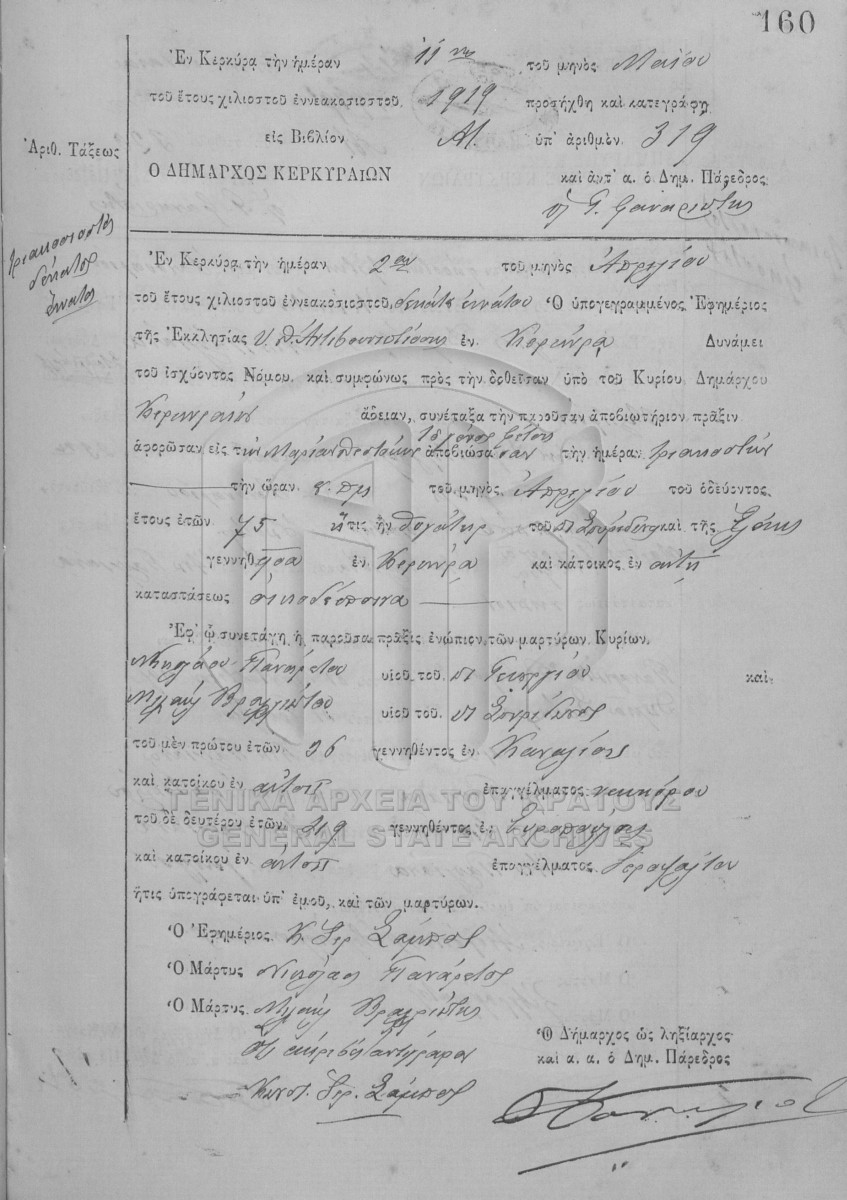 160
Ἐν Κερκύρᾳ τὴν ἡμέραν 11ην τοῦ μηνὸς Μαΐου
τοῦ ἔτους χιλιοστοῦ ἐννεακοσιοστοῦ 1919 προσήχθη καὶ κατεγράφη
εἰς Βιβλίον Α/. ὑπ' ἀριθμὸν 319
Ἀριθ. Τάξεως
Ὁ ΔΗΜΑΡΧΟΣ ΚΕΡΚΥΡΑΙΩΝ καὶ ἀντ' α. ὁ Δημ. Πάρεδρος
τριακοσιοστὸς
δέκατος
ἔννατος
Ἐν Κερκύρᾳ τὴν ἡμέραν 2αν τοῦ μηνὸς Ἀπριλίου
τοῦ ἔτους χιλιοστοῦ ἐννεακοσιοστοῦ δεκάτου ἐννάτου Ὁ ὑπογεγραμμένος Ἐφημέριος
τῆς Ἐκκλησίας Υ. Θ. Ἀντιβουνιωτίσσης ἐν Κερκύρᾳ Δυνάμει
τοῦ ἰσχύοντος Νόμου, καὶ συμφώνως πρὸς τὴν δοθεῖσαν ὑπὸ τοῦ Κυρίου Δημάρχου
Κερκυραίων ἄδειαν, συνέταξα τὴν παροῦσαν ἀποβιωτήριον πρᾶξιν
ἀφορῶσαν εἰς τὴν Μαρίαν ἀποβιώσασαν τὴν ἡμέραν τριακοστὴν
τὴν ὥραν 8 πμ τοῦ μηνὸς Ἀπριλίου τοῦ ὁδεύοντος
ἔτους ἐτῶν 75 ἥτις ἦν θυγάτηρ τοῦ Σπυρίδωνος καὶ τῆς Ἑλένης
γεννηθεῖσα ἐν Κερκύρᾳ καὶ κάτοικος ἐν αὐτῇ
καταστάσεως οἰκοδέσποινα
Ἐφ' ᾧ συνετάγη ἡ παροῦσα πρᾶξις ἐνώπιον τῶν μαρτύρων Κυρίων.
Νικολάου Παναρέτου υἱοῦ τοῦ Γεωργίου καὶ
Μιχαὴλ υἱοῦ τοῦ Σπυρίδωνος
τοῦ μὲν πρώτου ἐτῶν 36 γεννηθέντος ἐν Καναλίοις
καὶ κατοίκου ἐν αὐτοῦ ἐπαγγέλματος νεωκόρου
ΓΕΝΙΚΑ ΑΡΧΕΙΑ ΤΟΥ ΚΡΑΤΟΥΣ
τοῦ δὲ δευτέρου ἐτῶν 49 γεννηθέντος ἐν
GENERAL STATE ARCHIVES
καὶ κατοίκου ἐν αὐτοῦ ἐπαγγέλματος ἱεροψάλτου
ἥτις ὑπογράφεται ὑπ' ἐμοῦ, καὶ τῶν μαρτύρων.
Ὁ Ἐφημέριος Κ. Ἱερ. Σάμπος
Ὁ Μάρτυς Νικόλαος Πανάρετος
Ὁ Μάρτυς Μιχαὴλ
Ὅτι ἀκριβὲς ἀντίγραφον
Κωνστ. Ἱερ. Σάμπος
Ὁ Δήμαρχος ὡς ληξίαρχος
καὶ α. α. ὁ Δημ. Πάρεδρος